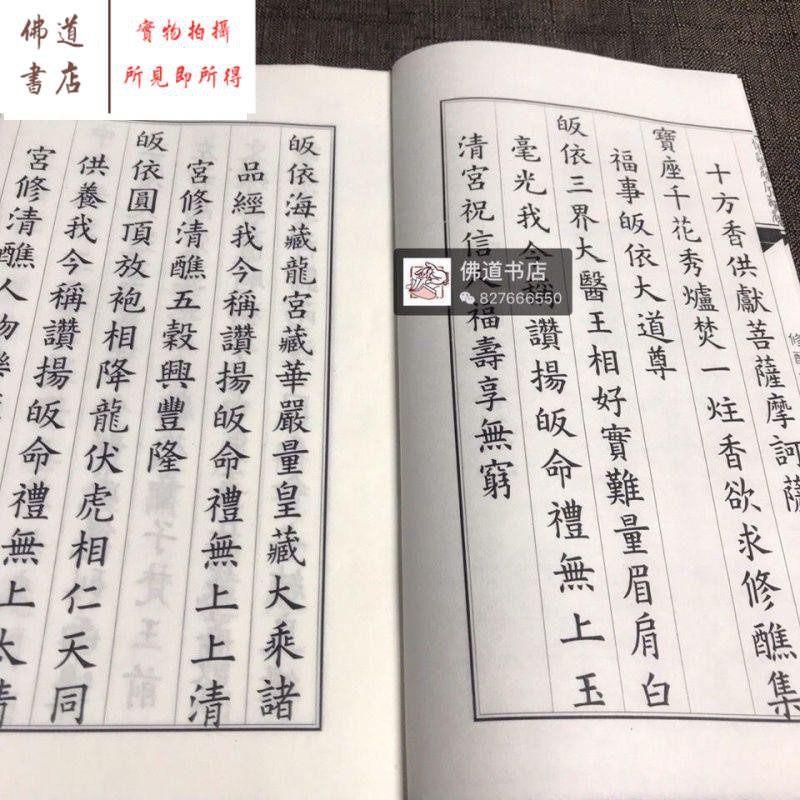 佛道書店
實物拍攝
所見即所得
十方香供獻菩薩摩訶薩
寶座千花秀爐焚一炷香欲求修醮集
福事皈依大道尊
皈依三界大醫王相好實難量眉肩白
毫光我今稱讚揚皈命禮無上玉
清宮祝信人福壽享無窮
佛道书店
827666550
皈依海藏龍宮藏華嚴量皇藏大乘諸
品經我今稱讚揚皈命禮無上上清
宮修清醮五穀興豐隆
皈依圓頂放袍相降龍伏虎相仁天同
供養我今稱讚揚皈命禮無上太清
宮修清醮人物樂